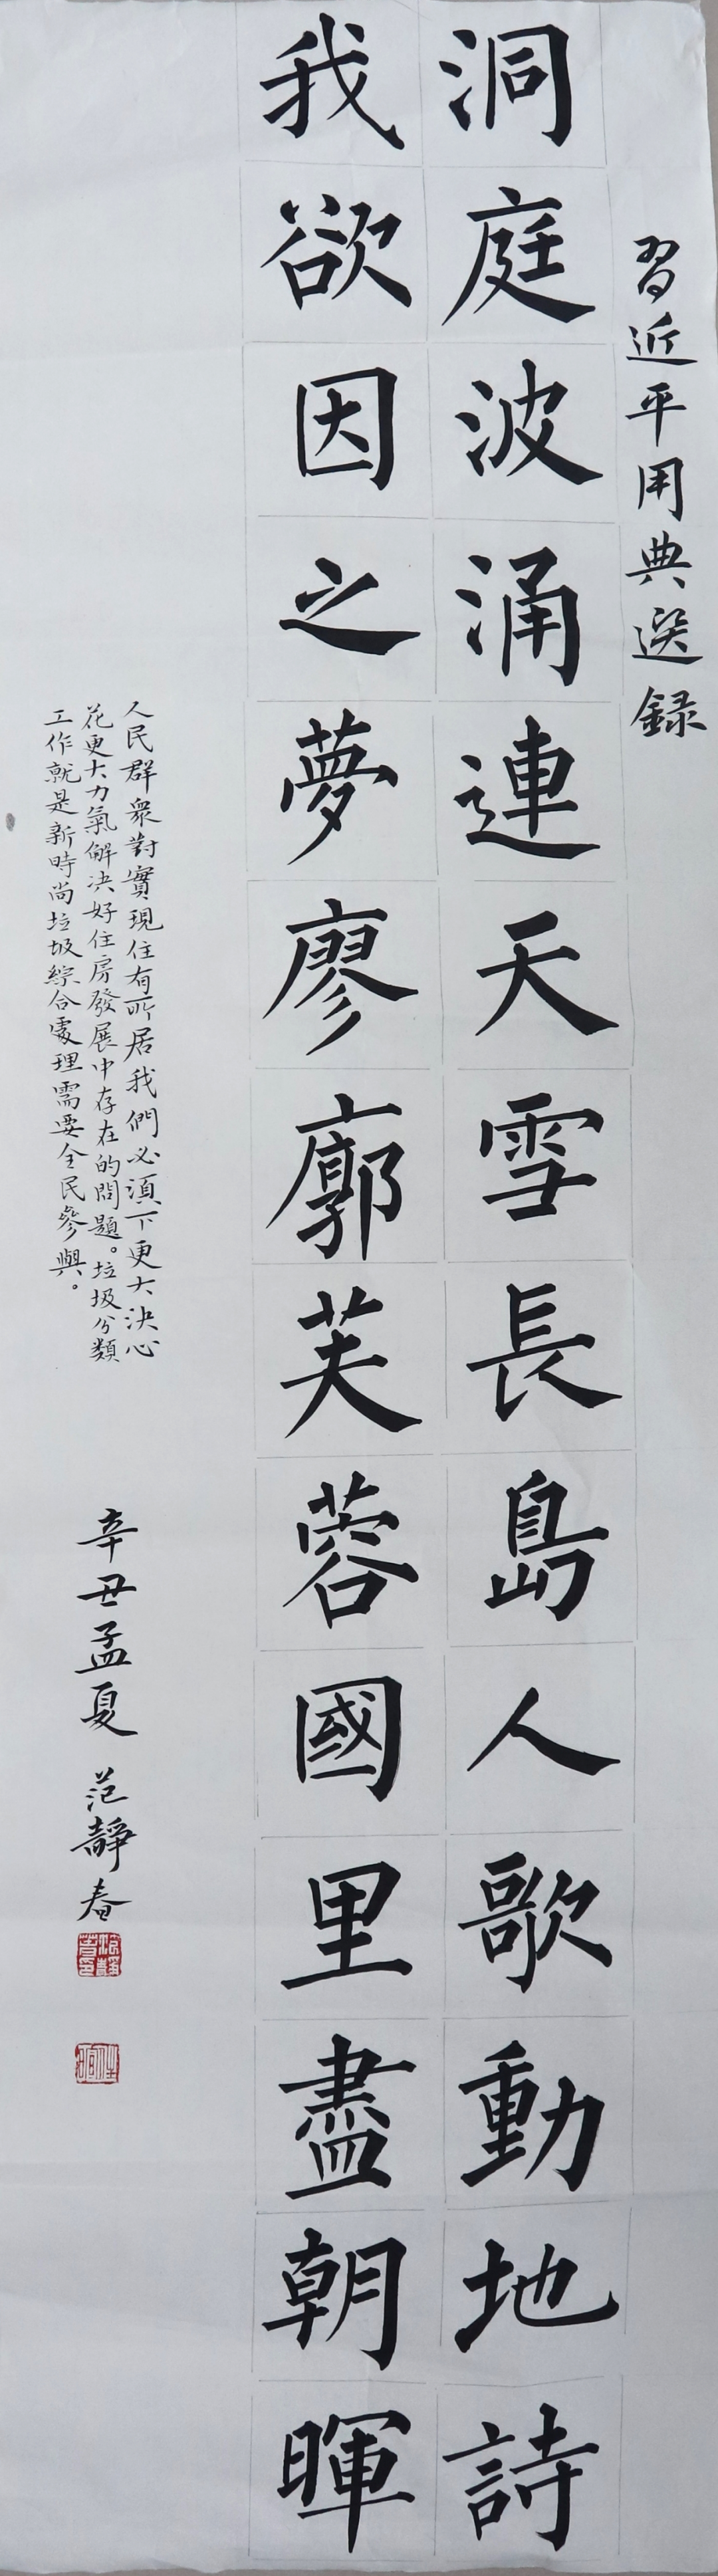 習近平用典選録
洞庭波涌連天雪長島人歌動地詩
我欲因之夢廖廓芙蓉國里盡朝暉
人民群衆對實現住有所居我們必須下更大決心
花更大力氣解决好住房發展中存在的問題。垃圾分類
工作就是新時尚垃圾綜合處理需要全民參與。
辛丑孟夏 范靜春